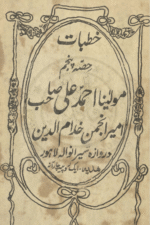 خطبات
حصہ پنجم
مولینا احمد علی صاحب
امیر انجمن خدام الدین
دروازہ شیرانوالہ لاہور